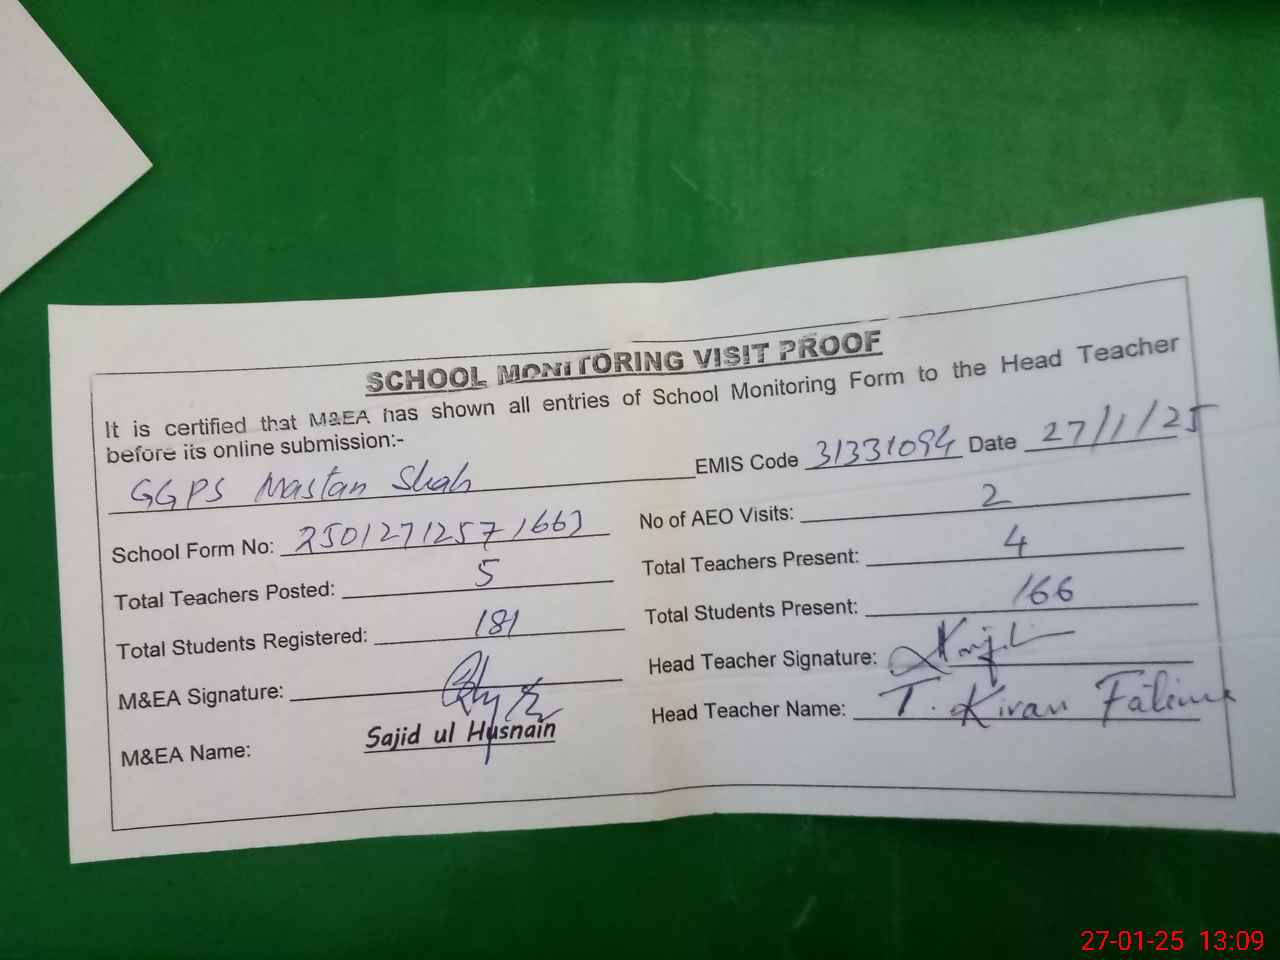 SCHOOL MONITORING VISIT PROOF
It is certified that M&EA has shown all entries of School Monitoring Form to the Head Teacher
before its online submission:-
GGPS Mastan Shah EMIS Code 31331094 Date 27/1/25
School Form No: 25012712571663 No of AEO Visits: 2
Total Teachers Posted: 5 Total Teachers Present: 4
Total Students Registered: 181 Total Students Present: 166
M&EA Signature: Head Teacher Signature:
M&EA Name: Sajid ul Husnain Head Teacher Name: T. Kiran Fatima
27-01-25 13:09